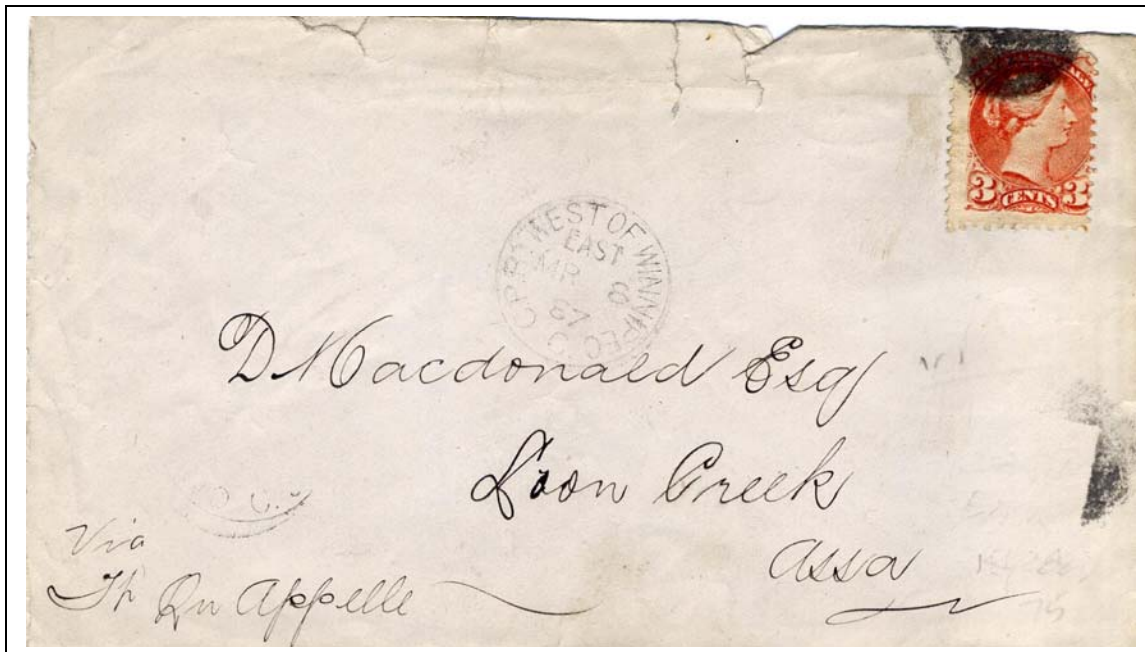 3 CENTS 3
C.P.R. WEST OF WINNIPEG
EAST
MR 8
87
D Macdonald Esq
Loon Creek
Assa
Via
Ft Qu Appelle